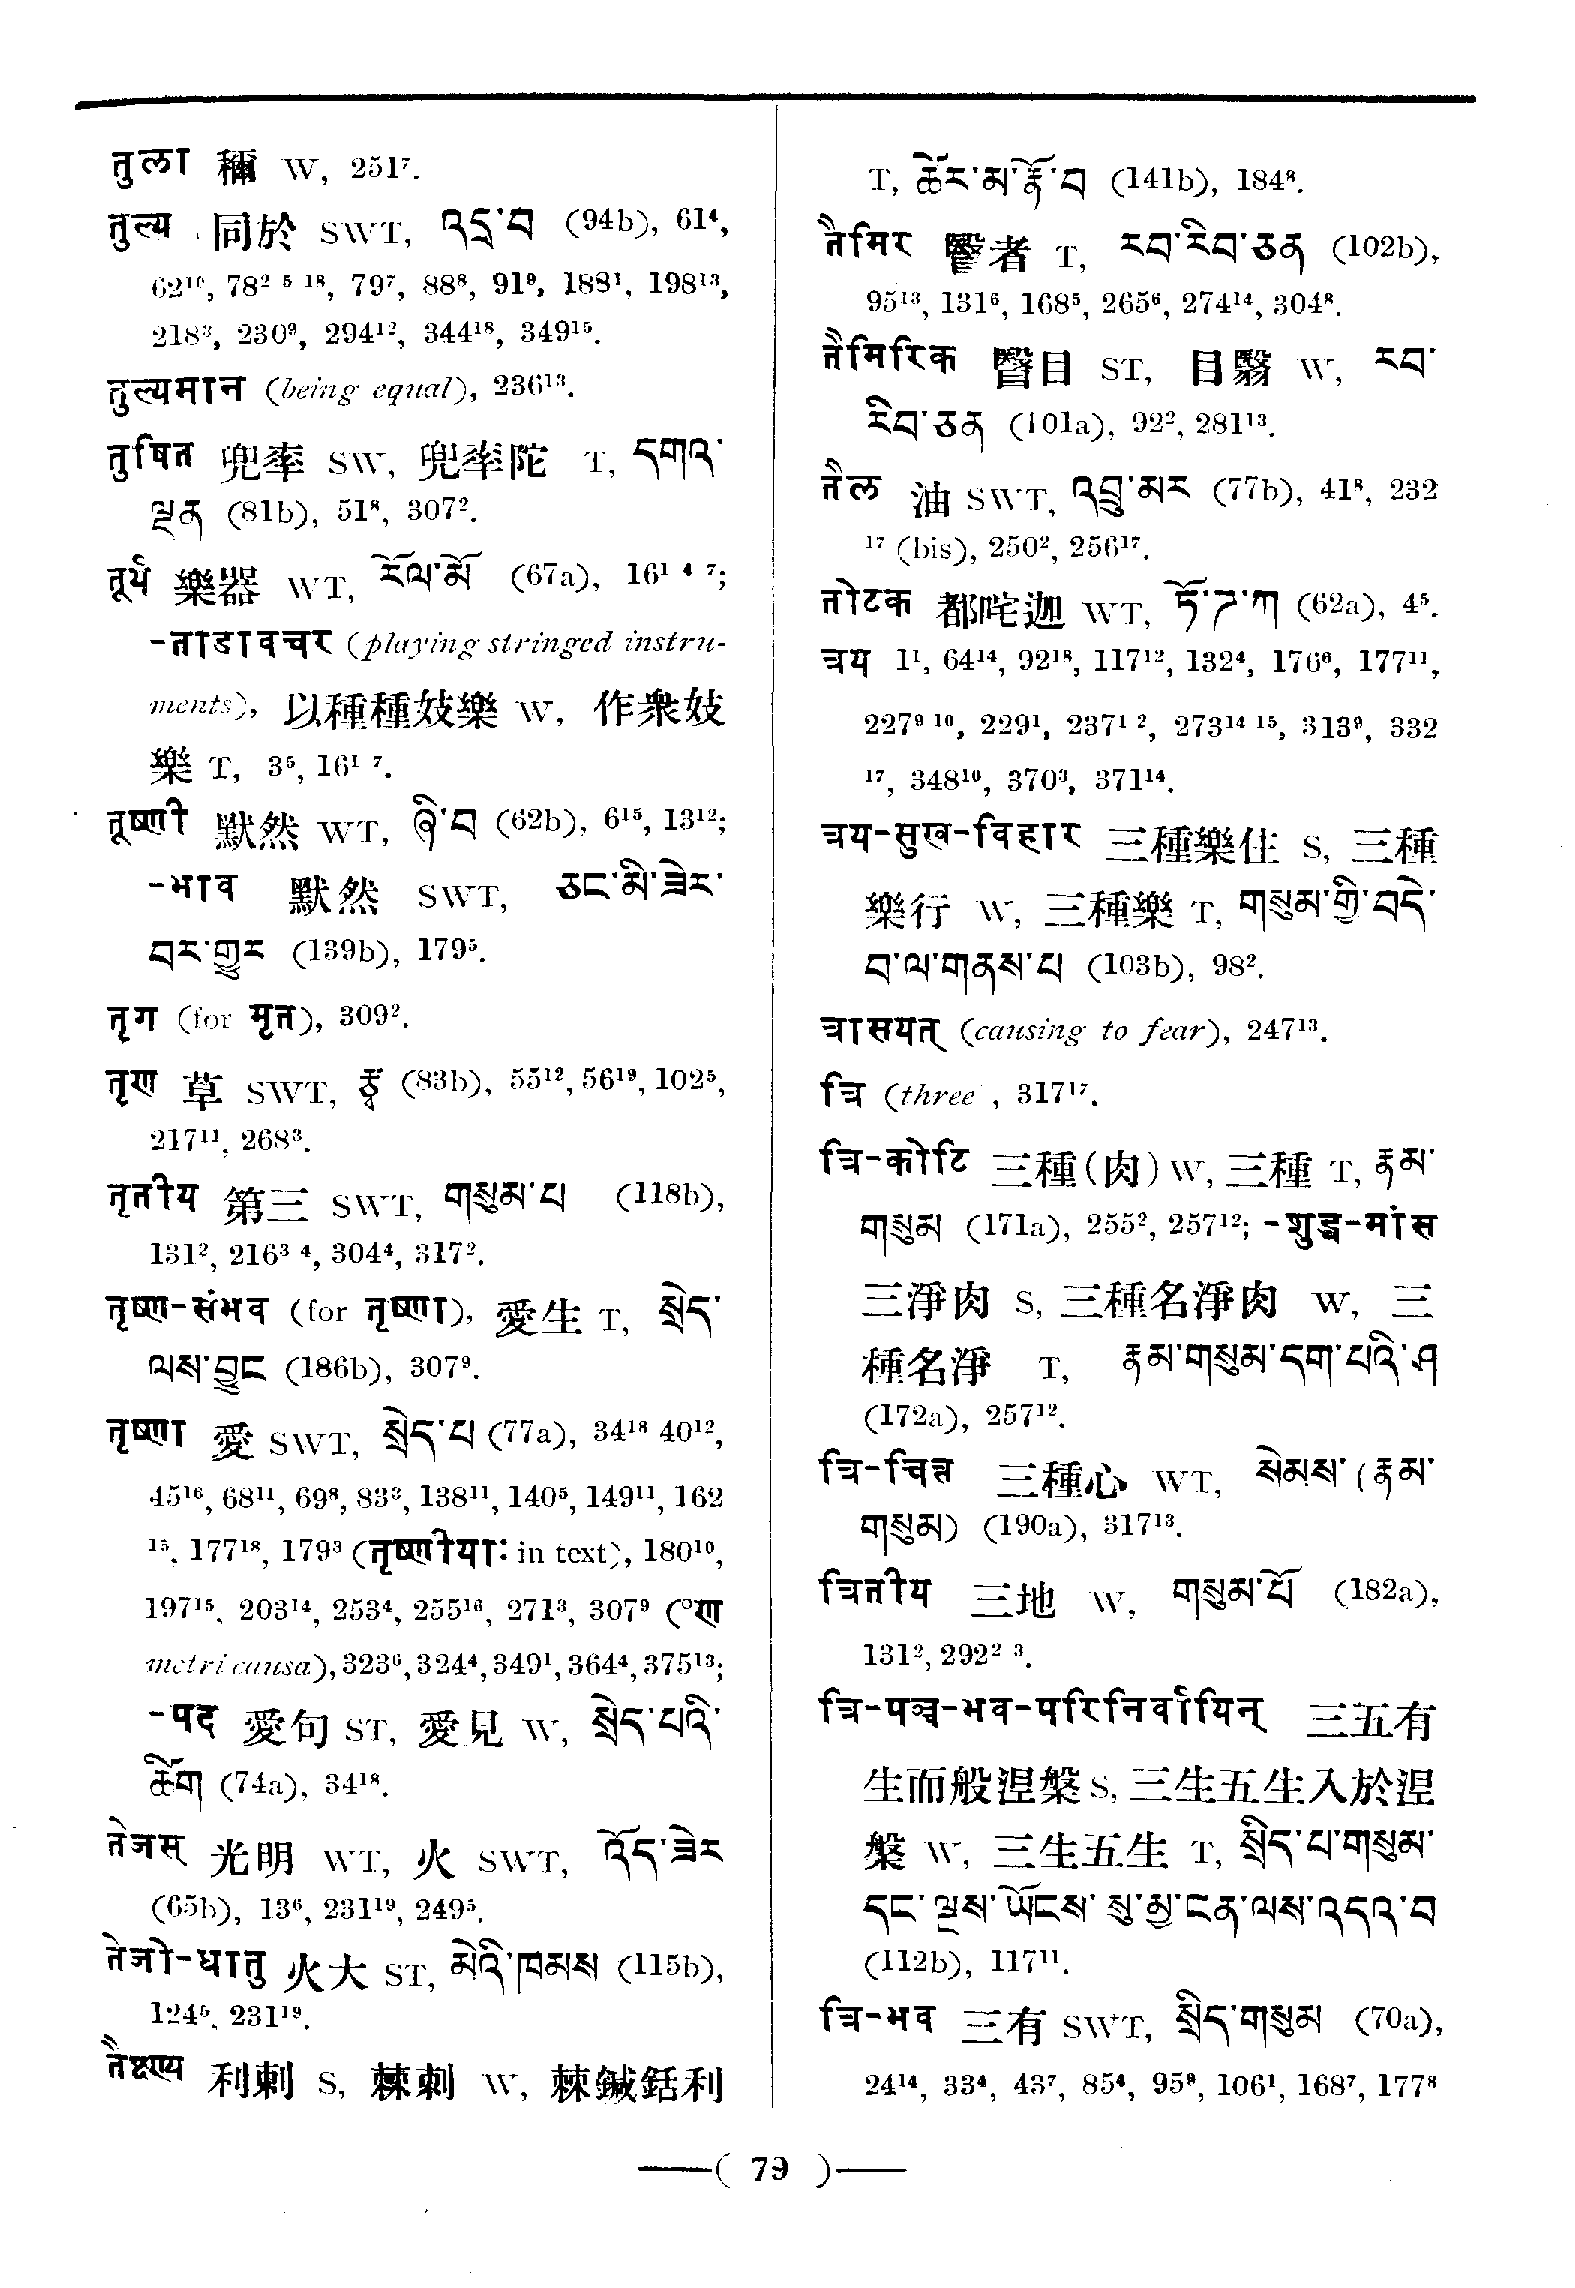 तुला 穪 W, 251⁷.
तुल्य 同於 SWT, འདྲ་བ (94b), 61⁴,
62¹⁰, 78² ⁵ ¹⁸, 79⁷, 88⁸, 91⁹, 188¹, 198¹³,
218³, 230⁹, 294¹², 344¹⁸, 349¹⁵.
तुल्यमान (being equal), 236¹³.
तुषित 兜率 SW, 兜率陀 T, དགའ་
ལྡན (81b), 51⁸, 307².
तूर्य 樂器 WT, རོལ་མོ (67a), 16¹ ⁴ ⁷;
-ताडावचर (playing stringed instru-
ments), 以種種妓樂 W, 作衆妓
樂 T, 3⁵, 16¹ ⁷.
तूष्णी 默然 WT, ཞི་བ (62b), 6¹⁵, 13¹²;
-भाव 默然 SWT, ཅང་མི་ཟེར་
བར་གྱུར (139b), 179⁵.
तृग (for मृत), 309².
तृण 草 SWT, རྩྭ (83b), 55¹², 56¹⁹, 102⁵,
217¹¹, 268³.
तृतीय 第三 SWT, གསུམ་པ (118b),
131², 216³ ⁴, 304⁴, 317².
तृष्ण-संभव (for तृष्णा), 愛生 T, སྲེད་
ལས་བྱུང (186b), 307⁹.
तृष्णा 愛 SWT, སྲེད་པ (77a), 34¹⁸ 40¹²,
45¹⁶, 68¹¹, 69⁸, 83³, 138¹¹, 140⁵, 149¹¹, 162
¹⁵, 177¹⁸, 179³ (तृष्णीयाः in text), 180¹⁰,
197¹⁵, 203¹⁴, 253⁴, 255¹⁶, 271³, 307⁹ (°ष्ण
metri causa), 323⁶, 324⁴, 349¹, 364⁴, 375¹³;
-पद 愛句 ST, 愛見 W, སྲེད་པའི་
ཚིག (74a), 34¹⁸.
तेजस् 光明 WT, 火 SWT, འོད་ཟེར
(65b), 13⁶, 231¹⁹, 249⁵.
तेजो-धातु 火大 ST, མེའི་ཁམས (115b),
124⁵, 231¹⁹.
तैक्ष्ण्य 利刺 S, 棘刺 W, 棘鍼銛利
T, ཚེར་མ་རྣོ་བ (141b), 184⁸.
तैमिर 瞖者 T, རབ་རིབ་ཅན (102b),
95¹³, 131⁶, 168⁵, 265⁶, 274¹⁴, 304⁸.
तैमिरिक 瞖目 ST, 目翳 W, རབ་
རིབ་ཅན (101a), 92², 281¹³.
तैल 油 SWT, འབྲུ་མར (77b), 41⁸, 232
¹⁷ (bis), 250², 256¹⁷.
तोटक 都咤迦 WT, ཏོ་ཊ་ཀ (62a), 4⁵.
त्रय 1¹, 64¹⁴, 92¹⁸, 117¹², 132⁴, 176⁶, 177¹¹,
227⁹ ¹⁰, 229¹, 237¹ ², 273¹⁴ ¹⁵, 313⁹, 332
¹⁷, 348¹⁰, 370³, 371¹⁴.
त्रय-सुख-विहार 三種樂住 S, 三種
樂行 W, 三種樂 T, གསུམ་གྱི་བདེ་
བ་ལ་གནས་པ (103b), 98².
त्रासयत् (causing to fear), 247¹³.
त्रि (three , 317¹⁷.
त्रि-कोटि 三種(肉) W, 三種 T, རྣམ་
གསུམ (171a), 255², 257¹²; -शुद्ध-मांस
三淨肉 S, 三種名淨肉 W, 三
種名淨 T, རྣམ་གསུམ་དག་པའི་ཤ
(172a), 257¹².
त्रि-चित्त 三種心 WT, སེམས་(རྣམ་
གསུམ) (190a), 317¹³.
त्रितीय 三地 W, གསུམ་པོ (182a),
131², 292² ³.
त्रि-पञ्च-भव-परिनिर्वायिन् 三五有
生而般涅槃 S, 三生五生入於涅
槃 W, 三生五生 T, སྲིད་པ་གསུམ་
དང་ལྔས་ཡོངས་སུ་མྱ་ངན་ལས་འདའ་བ
(112b), 117¹¹.
त्रि-भव 三有 SWT, སྲིད་གསུམ (70a),
24¹⁴, 33⁴, 43⁷, 85⁴, 95⁹, 106¹, 168⁷, 177⁸
( 79 )